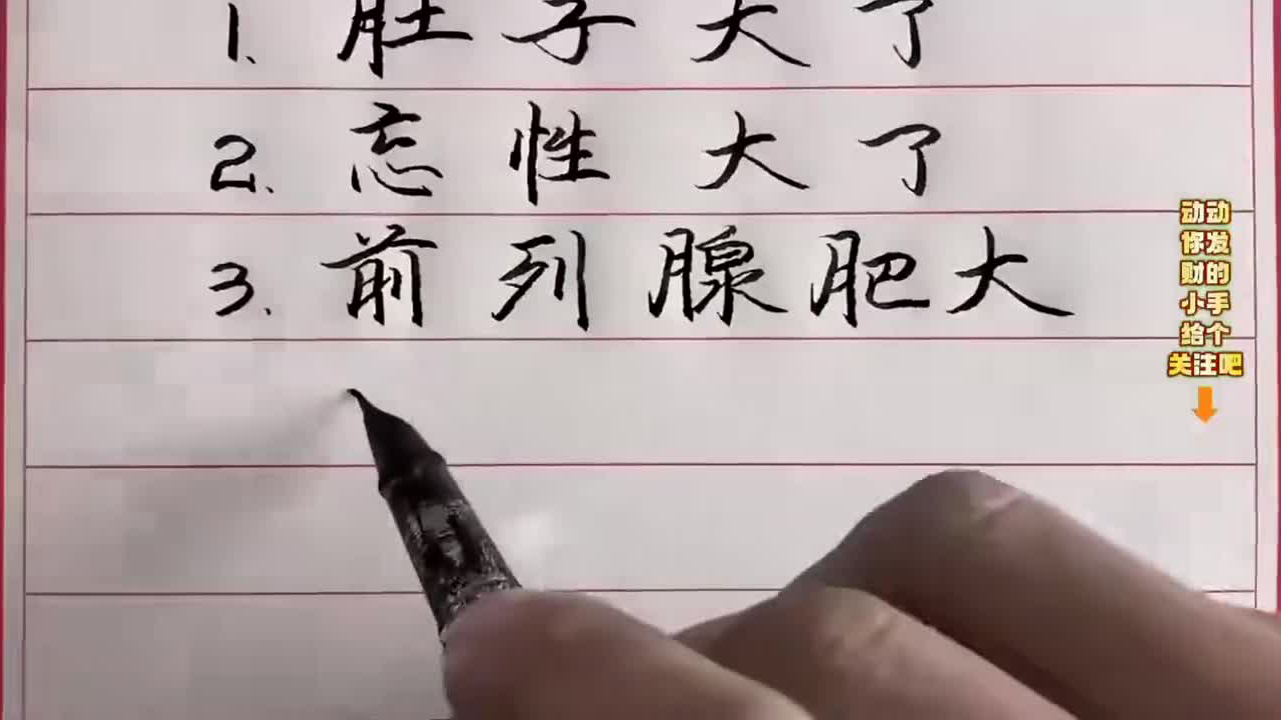 1. 肚子大了
2. 忘性大了
3. 前列腺肥大
动动
你发
财的
小手
给个
关注吧